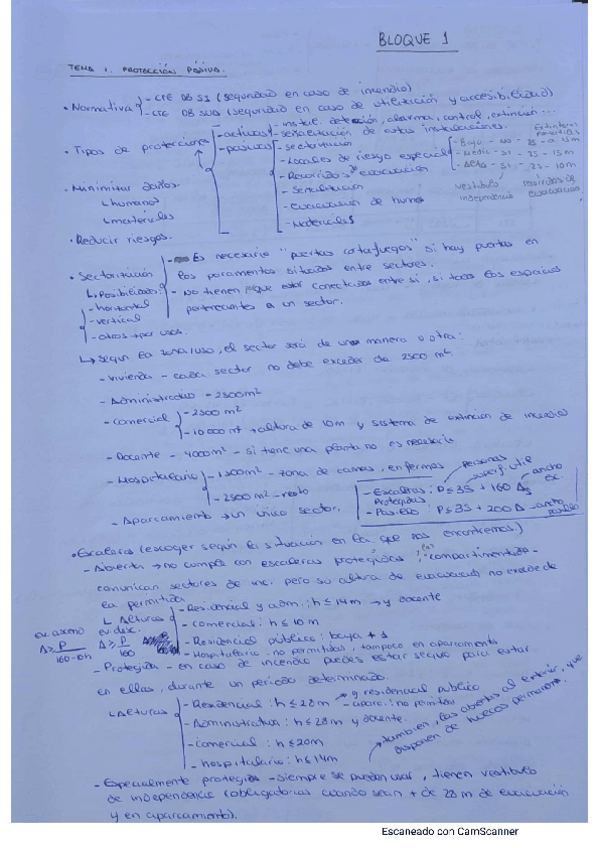 BLOQUE 1
TEMA 1. PROTECCIÓN PASIVA.
• Normativa - CTE DB SI (seguridad en caso de incendio)
- CTE DB SUA (seguridad en caso de utilización y accesibilidad)
• Tipos de protecciones - activas - instal. detección, alarma, control, extinción...
- señalización de estas instalaciones.
- pasivas - sectorización
- Locales de riesgo especial - Bajo - no - 25 - 
- Medio - si - 25 - 15 m
- Alto - si - 25 - 10 m
- Recorridos de evacuación
- Señalización
- evacuación de humos
- Materiales
vestíbulo independencia
recorridos de evacuación
• Minimizar daños.
↳ humanos
↳ materiales
• Reducir riesgos.
• Sectorización - Es necesario "puertas cortafuegos" si hay puertas en
los paramentos situados entre sectores.
- No tienen que estar conectados entre si, si todos los espacios
pertenecen a un sector.
↳ Posibilidades:
- horizontal
- vertical
- otros → por usos.
↳ según la zona/uso, el sector será de una manera o otra:
- Vivienda - cada sector no debe exceder de 2500 m²
- Administrativo - 2500 m²
- comercial - 2500 m²
- 10000 m² → altura de 10m y sistema de extinción de incendio
- Docente - 4000 m² - si tiene una planta no es necesario
- Hospitalario - 1500 m² - zona de camas, enfermos
- 2500 m² - resto
- Aparcamiento → un único sector.
personas
superf. util
ancho esc.
- Escaleras Protegidas : P ≤ 3S + 160 As
- Pasillo : P ≤ 3S + 200 A - ancho pasillo
• Escaleras (escoger según la situación en la que nos encontremos.)
- Abierta → no cumple con escaleras protegidas, compartimentada -
comunican sectores de inc. pero su altura de evacuación no excede de
la permitida
↳ Alturas - Residencial y adm.: h ≤ 14m → y docente
- comercial: h ≤ 10 m
- Residencial público: baja + 1
- Hospitalario - no permitidas, tampoco en aparcamiento
ev. ascend
A ≥ P / 160-10h
ev. desc.
A ≥ P / 160
- Protegida - en caso de incendio puedes estar seguro para estar
en ellas, durante un periodo determinado.
↳ Alturas - Residencial: h ≤ 28m → y residencial publico
- aparc.: no permitidas
- Administrativa: h ≤ 28m y docente.
- comercial: h ≤ 20m
- hospitalario: h ≤ 14m
→ también, las abiertas al exterior, que
disponen de huecos permanen.
- Especialmente protegida - siempre se pueden usar, tienen vestíbulo
de independencia (obligatorias cuando sean + de 28 m de evacuación
y en aparcamiento).
Escaneado con CamScanner